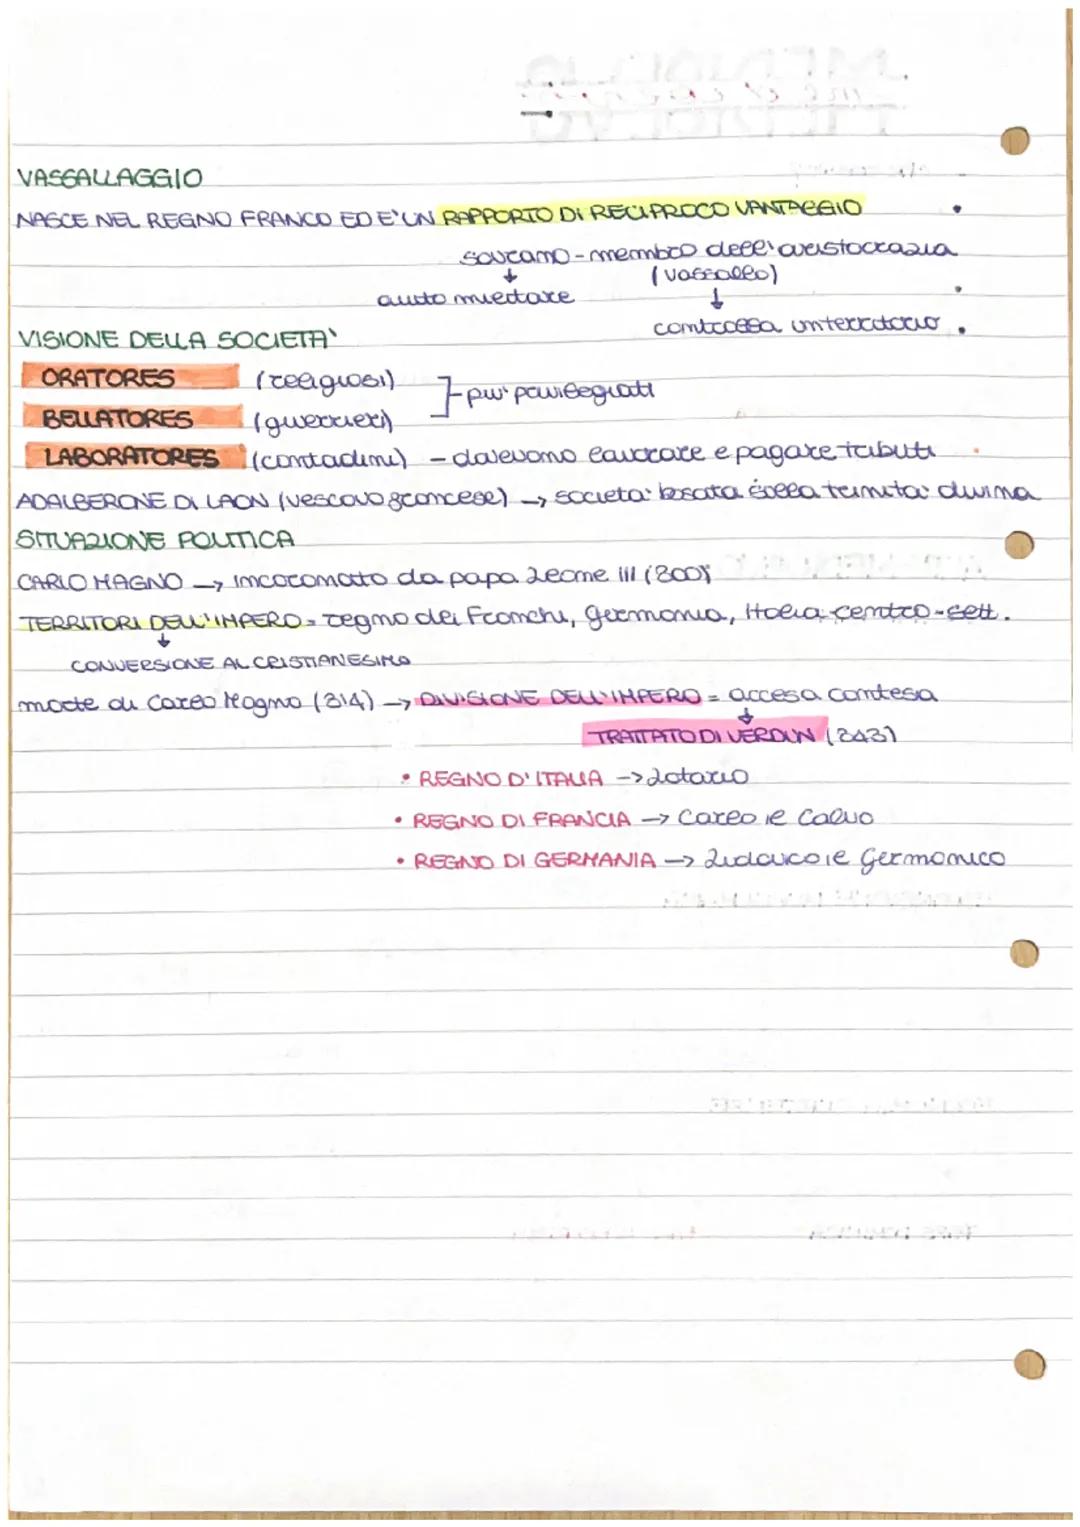 VASSALLAGGIO
NASCE NEL REGNO FRANCO ED E' UN RAPPORTO DI RECIPROCO VANTAGGIO
sovrano - membro dell'aristocrazia
↓ (vassallo)
aiuto militare ↓
controlla un territorio
VISIONE DELLA SOCIETA'
ORATORES (religiosi)
] - piu' privilegiati
BELLATORES (guerrieri)
LABORATORES (contadini) - dovevano lavorare e pagare tributi
ADALBERONE DI LAON (vescovo francese) → societa' basata sulla trinita' divina
SITUAZIONE POLITICA
CARLO MAGNO → incoronato da papa Leone III (800)
TERRITORI DELL'IMPERO = regno dei Franchi, Germania, Italia centro-sett.
↓
CONVERSIONE AL CRISTIANESIMO
morte di Carlo Magno (814) → DIVISIONE DELL'IMPERO = accesa contesa
↓
TRATTATO DI VERDUN (843)
• REGNO D'ITALIA → Lotario
• REGNO DI FRANCIA → Carlo il Calvo
• REGNO DI GERMANIA → Ludovico il Germanico